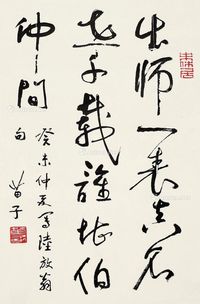 出师一表真名
世千载谁堪伯
仲间
癸未仲夏写陆放翁
句 苗子